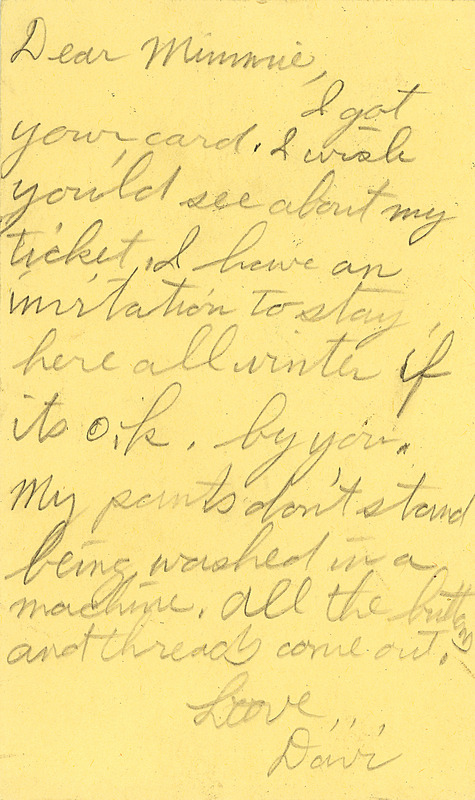 Dear Mimmie,
I got
your card. I wish
you'ld see about my
ticket. I have an
invitation to stay
here all winter if
its o.k. by you.
My pants don't stand
being washed in a
machine. All the buttons
and threads come out.
Love,,,
Davi